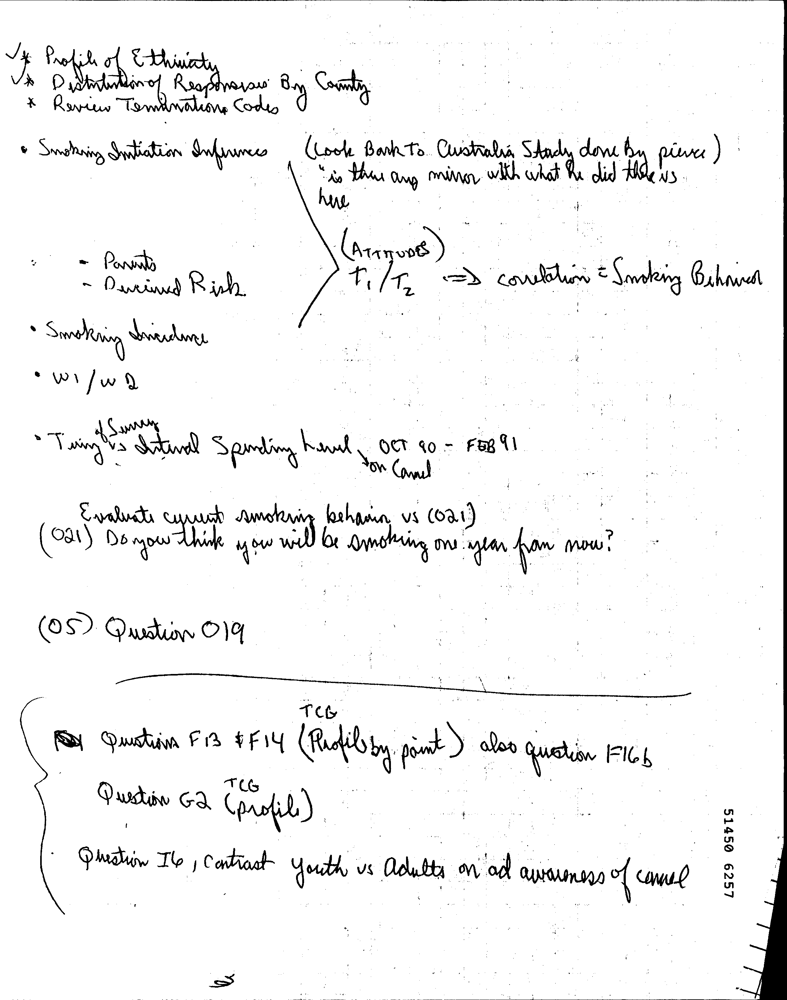 ✓* Profile of Ethnicity
✓* Distribution of Responses By County
* Review Termination Codes
• Smoking Initiation Inferences (Look Back To Australia Study done by pierce)
"is there any mirror with what he did there vs
here
(ATTITUDES)
- Parents
- Perceived Risk
T1/T2 ⇒ correlation = Smoking Behavior
• Smoking Incidence
• W1/W2
of Survey
• Timing vs Interval Spending Level OCT 90 - FEB 91
on Camel
Evaluate current smoking behavior vs (021)
(021) Do you think you will be smoking one year from now?
(05) Question 019
TCG
Questions F13 & F14 (Profile by point) also question F16b
TCG
Question G2 (profile)
Question I6, Contrast youth vs Adults on ad awareness of camel
51450 6257